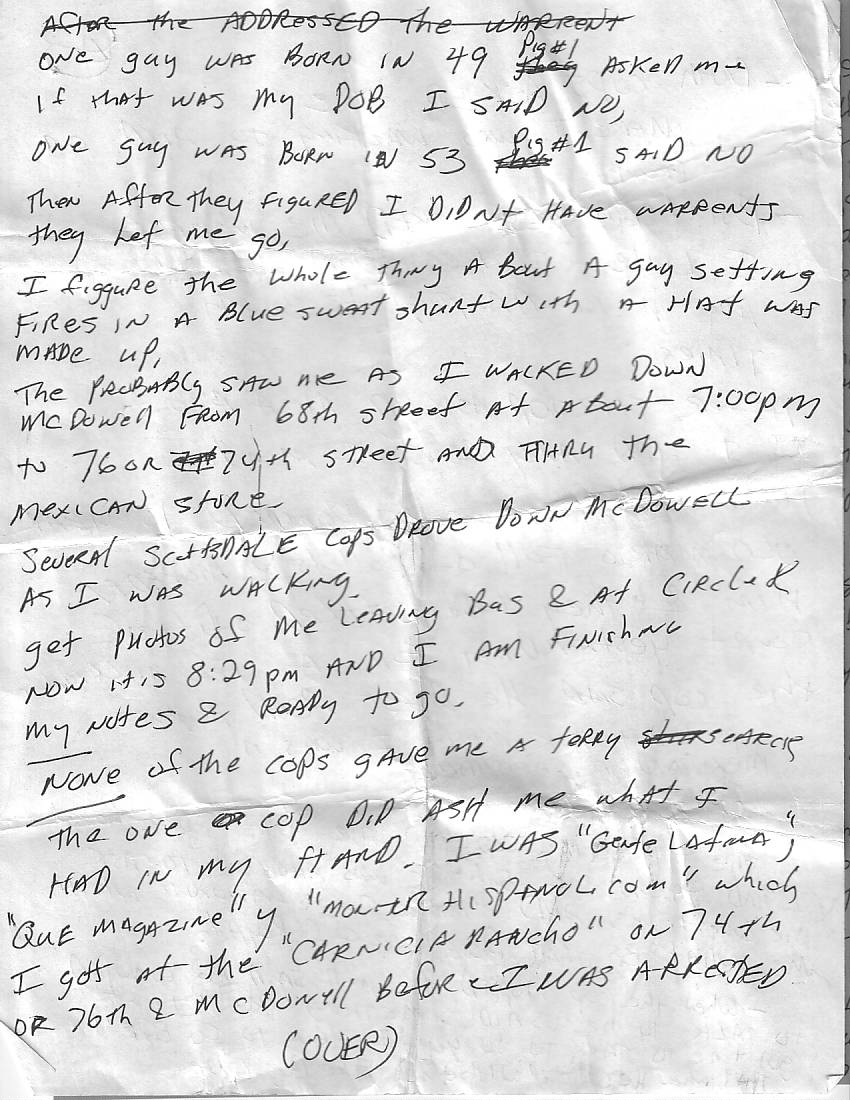 After the ADDRESSED the WARRENT
ONE guy WAS BORN IN 49 Pig #1 they ASKED me
If that WAS my DOB I SAID NO,
ONE guy WAS BORN IN 53 Pig #1 SAID NO
Then After they FIGURED I DIDNt HAVE WARRENTS
they Let me go,
I figgure the whole thing A Bout A guy setting
FIRES IN A Blue sweat shurt with A HAt WAS
MADE up,
The PROBABly SAW me AS I WALKED DOWN
McDowell FROM 68th street At About 7:00pm
to 76 OR 74th street AND THRU the
MEXICAN STORE.
Several Scottsdale Cops DROVE DOWN McDOWELL
AS I WAS WALKING.
get PHOTOS of me LEAVING Bus & At CIRCLE K
NOW it is 8:29pm AND I AM FINISHING
my NOTES & READY to go.
NONE of the COPS gAVE me A terry SEARCH
the ONE COP DID ASK me what I
HAD IN my HAND. I WAS "Gente LAtina",
"QUE MAGAZINE" y "MONITOR HISPANOL.com" which
I gott At the "CARNICIA RANCHO" ON 74th
OR 76th & McDowell Before I WAS ARRESTED
(OVER)